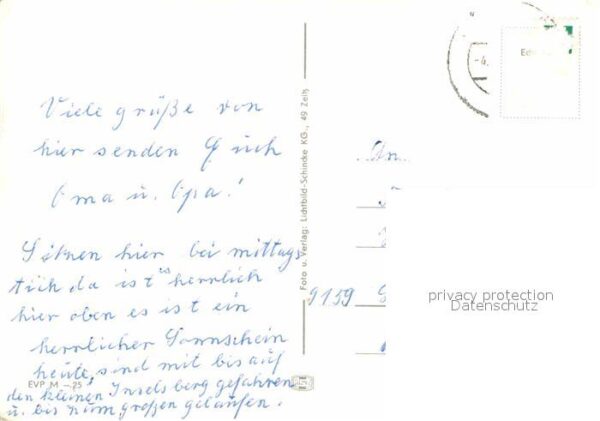 Viele grüße von
hier senden Euch
Oma u. Opa!
Sitzen hier bei mittags
tich da ist es herrlich
hier oben es ist ein
herrlicher Sonnschein
heute, sind mit bis auf
den kleinen Inselsberg gefahren
u. bis zum großen gelaufen.
EVP M -.25
Foto u. Verlag: Lichtbild-Schincke KG., 49 Zeitz
An
9139
privacy protection
Datenschutz